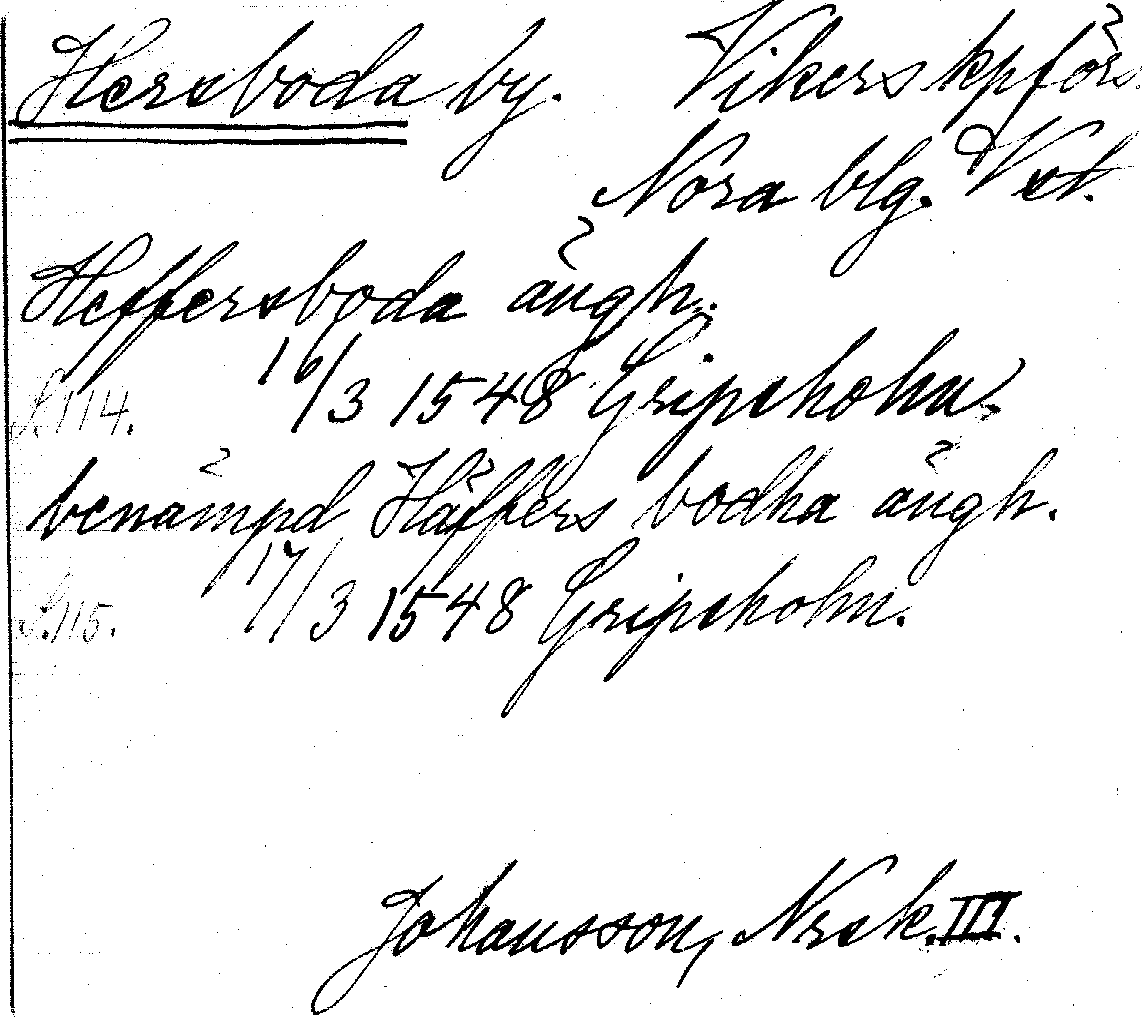 Hersboda by. Vikers kpförs.
Nora blg. Vst.
Heffersboda ängh.
S. 114. 16/3 1548 Gripsholm.
benämpd Häffers bodha ängh.
S. 115. 17/3 1548 Gripsholm.
Johansson, Nrsk. III.